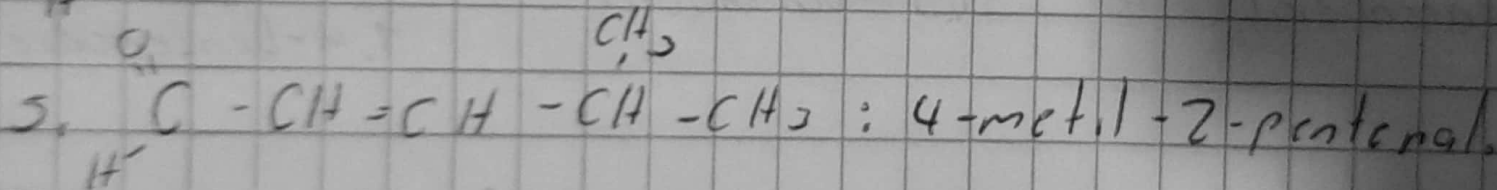 O CH3
5. C - CH = CH - CH - CH3 : 4-metil-2-pentenal.
H